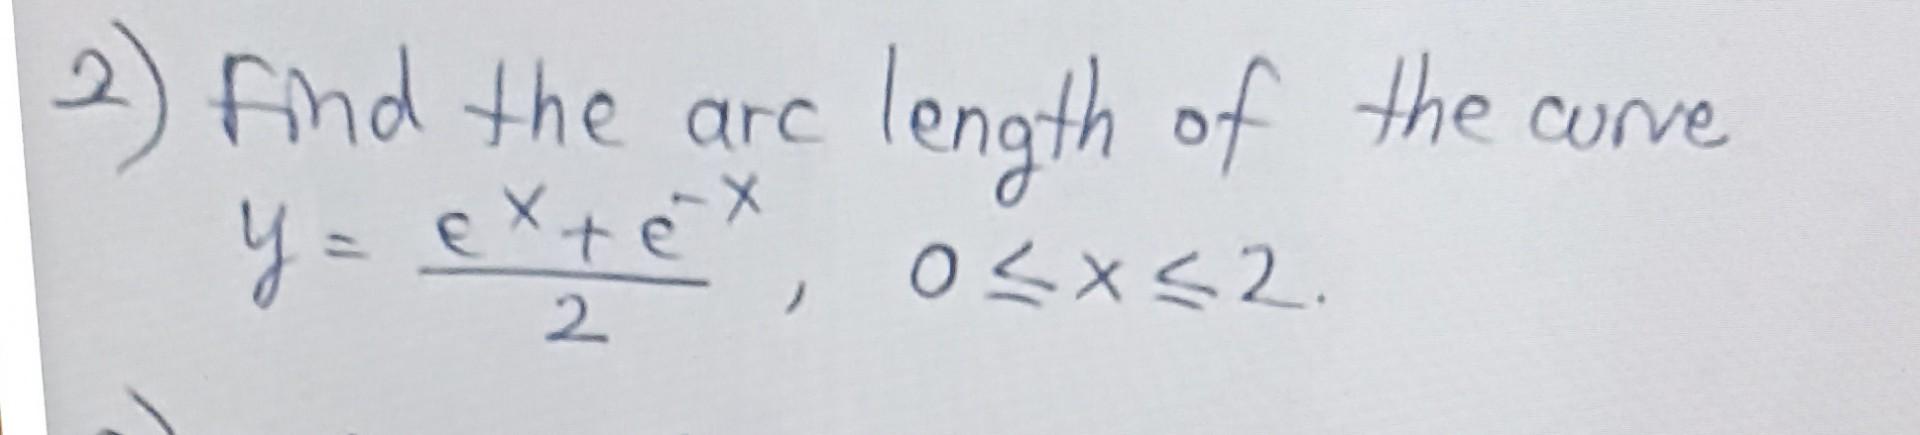 2) Find the arc length of the curve
y = (e^x + e^-x)/2, 0 ≤ x ≤ 2.